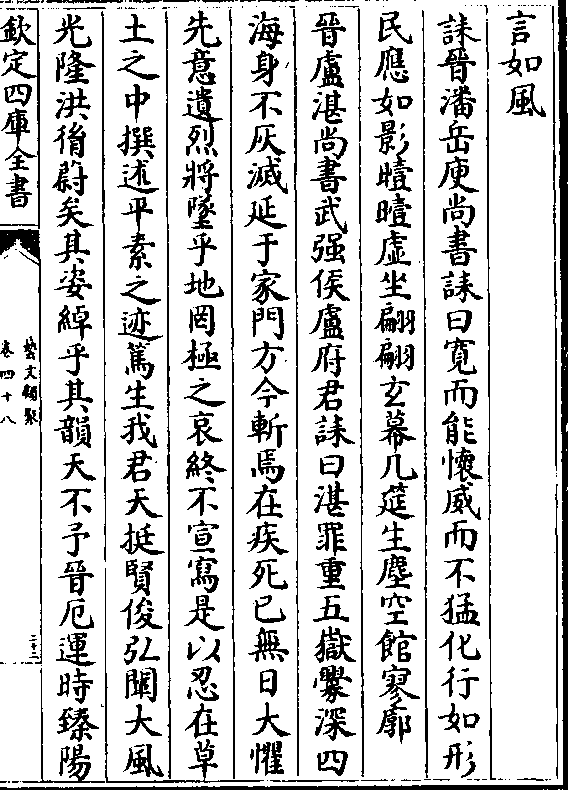 言如風
誄晉潘岳庾尚書誄曰寛而能懷威而不猛化行如形
民應如影曀曀虛坐翩翩玄幕几筵生塵空館寥廓
晉盧湛尚書武强侯盧府君誄曰湛罪重五嶽釁深四
海身不灰滅延于家門方今斬焉在疾死已無日大懼
先意遺烈將墜乎地罔極之哀終不宣寫是以忍在草
土之中撰述平素之迹篤生我君天挺賢俊弘闡大風
光隆洪胄蔚矣其姿綽乎其韻天不予晉厄運時臻陽
欽定四庫全書
藝文類聚
卷四十八
二十三